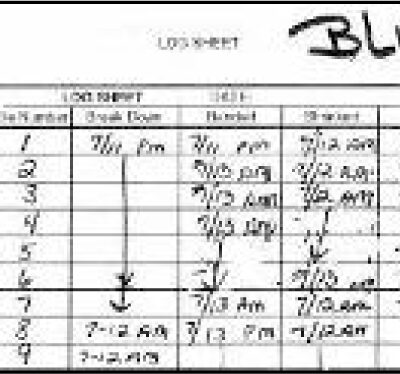 LOG SHEET BL
LOG SHEET DATE
Number Break Down Started
1 7/11 PM 7/11 PM 7/12 AM
2 7/13 AM 7/12 AM
3 7/13 AM 7/12 AM
4 7/13 AM
5
6 7/13
7 7/13 AM 7/12 AM
8 7-12 AM 7/13 PM 7/12 AM
9 7-12 AM